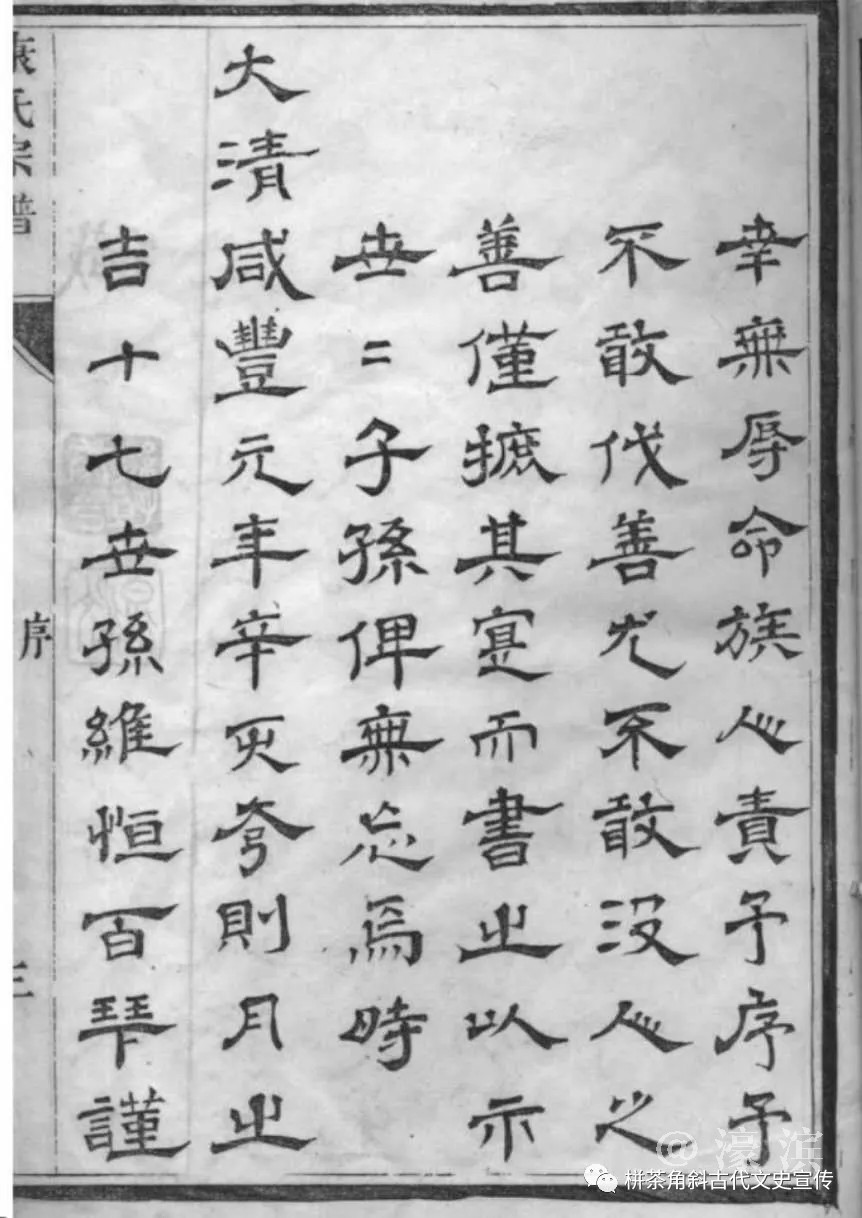 幸無辱命族人責予序予
不敢伐善尤不敢没人之
善僅摭其寔而書之以示
世二子孫俾無忘焉時
大清咸豐元年辛亥夷則月之
吉十七世孫維恒百拜謹
氏宗譜
序
三
@濠滨
栟茶角斜古代文史宣传